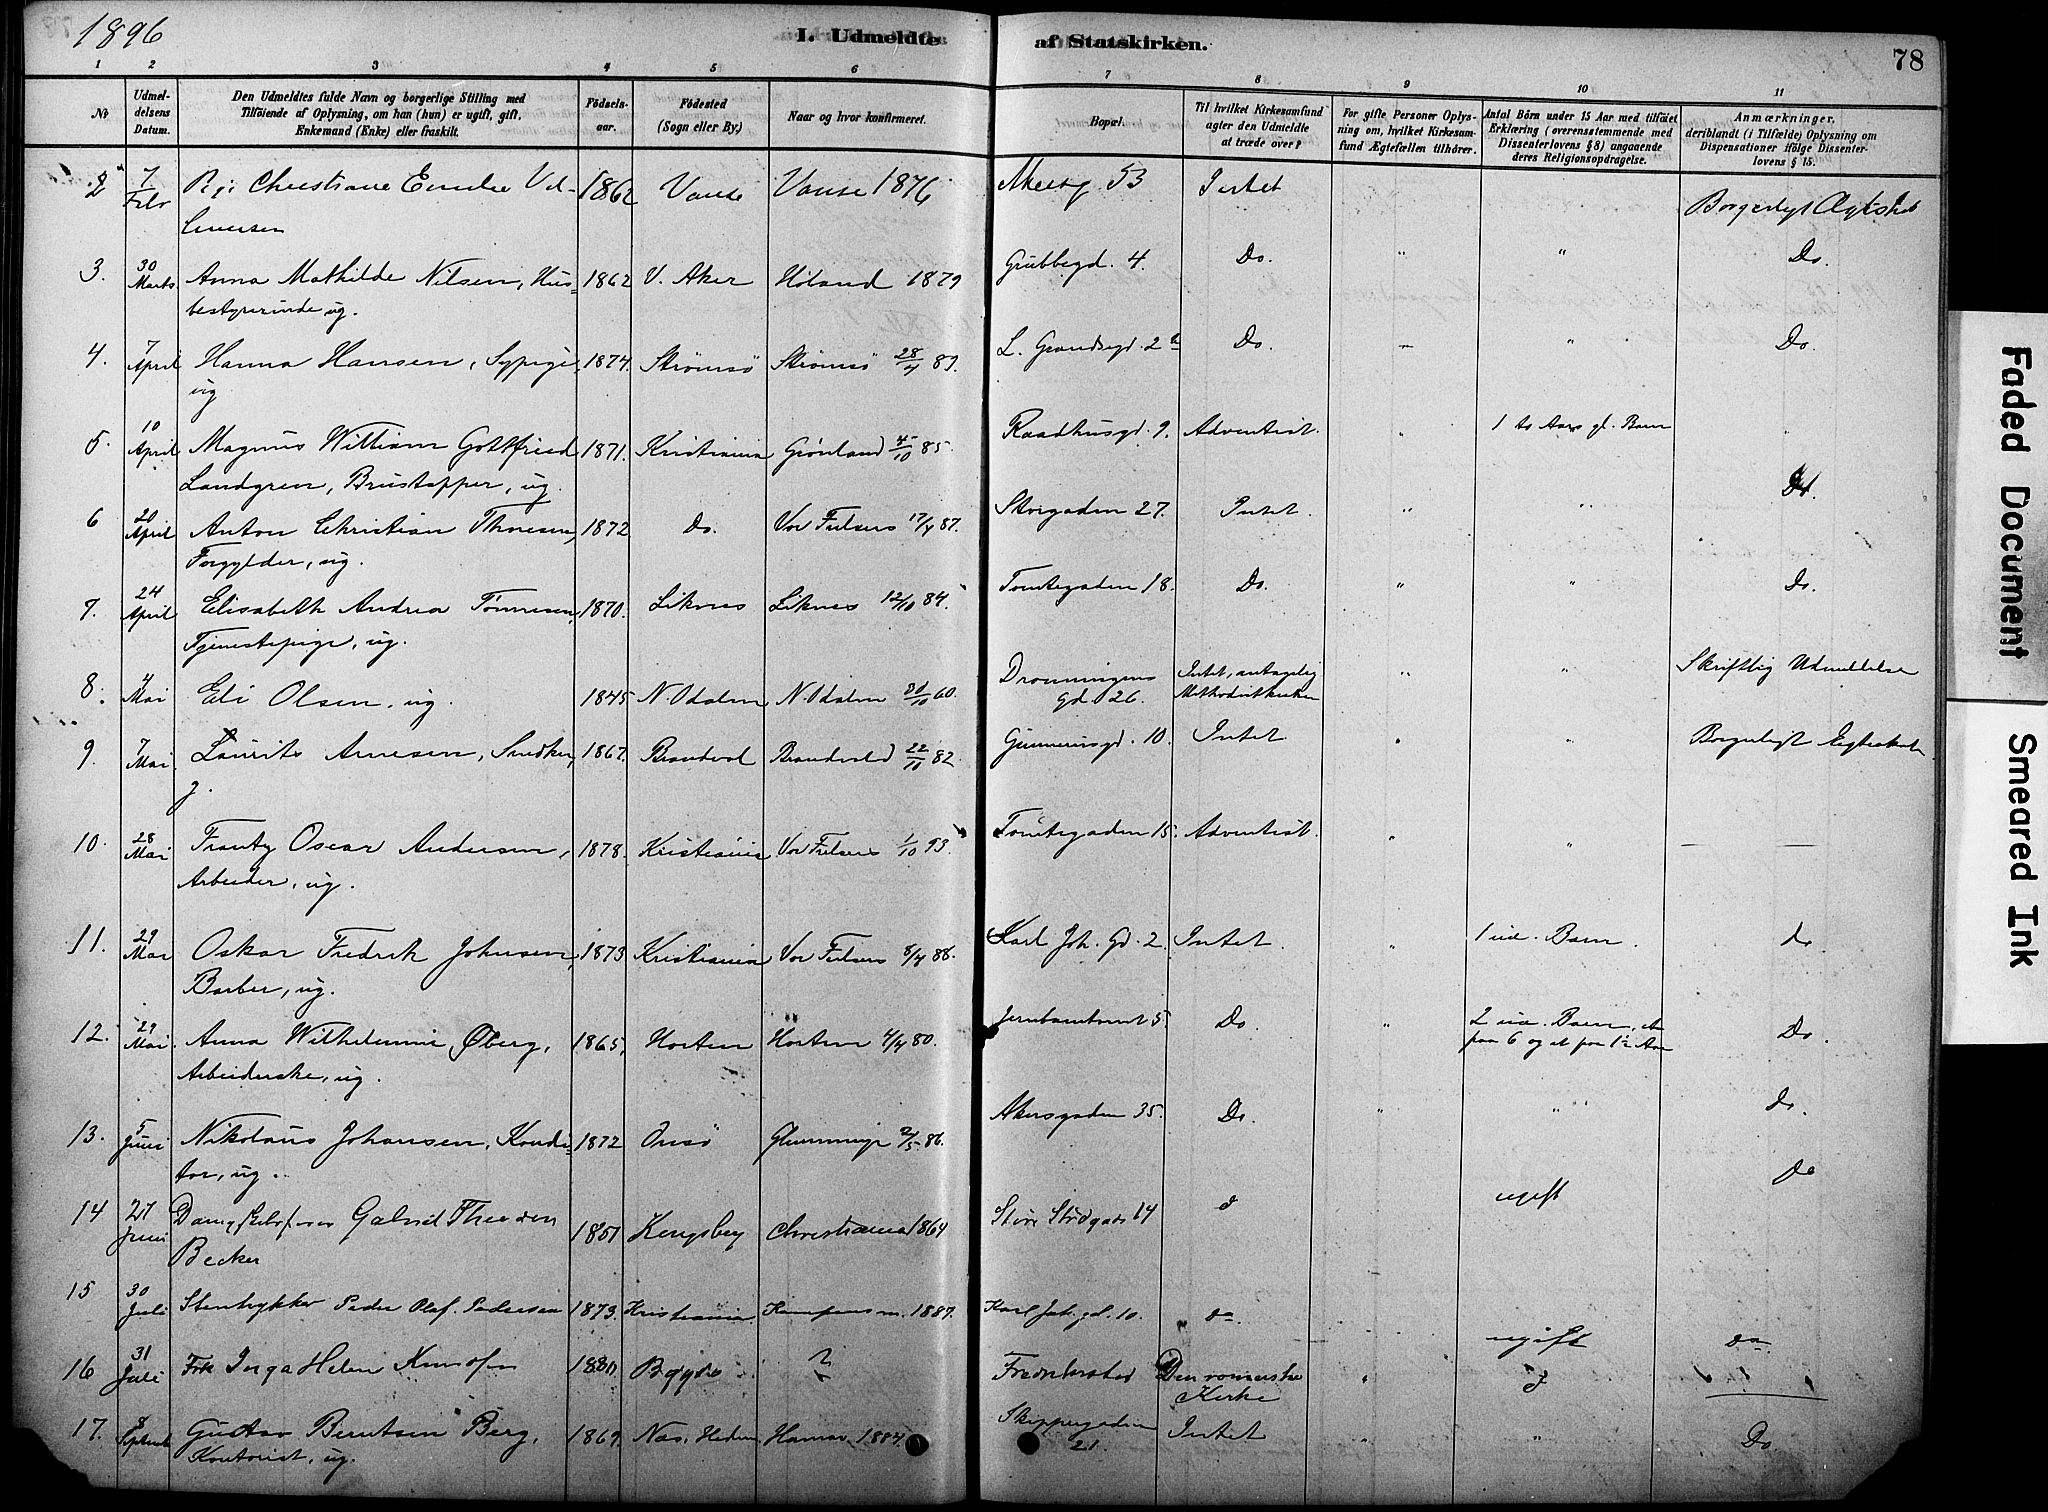 1896
I. Udmeldte af Statskirken.
78
1 2 3 4 5 6 7 8 9 10 11
Nr
Udmel-
delsens
Datum.
Den Udmeldtes fulde Navn og borgerlige Stilling med
Tilföiende af Oplysning, om han (hun) er ugift, gift,
Enkemand (Enke) eller fraskilt.
Födsels-
aar.
Födested
(Sogn eller By.)
Naar og hvor konfirmeret.
Bopæl.
Til hvilket Kirkesamfund
agter den Udmeldte
at træde over?
For gifte Personer Oplys-
ning om, hvilket Kirkesam-
fund Ægtefællen tilhörer.
Antal Börn under 15 Aar med tilföiet
Erklæring (overensstemmende med
Dissenterlovens § 8) angaaende
deres Religionsopdragelse.
Anmærkninger,
deriblandt (i Tilfælde) Oplysning om
Dispensationer ifölge Dissenter-
lovens § 15.
2 7 Febr Christiane 1862 Vanse Vanse 1876 Akersg. 53 Intet
3. 30 Marts. Anna Mathilde Nilsen, Hus- 1862 V. Aker Höland 1879 Grubbegd. 4. Do. " " Do.
bestyrerinde ug.
4. 7 April Hanna Hansen, Sypige, 1874. Strömsö Strömsö 28/4 89. L. Grandsegd. 2 Do. " Do.
ug
5. 10 April Magnus William Gottfried 1871. Kristiania Grönland 4/10 85. Raadhusgd. 9. Adventist. " 1 Aars gl. Barn "
Landgren, Brustapper, ug.
6 20 April Anton Christian Thoresen, 1872 Do. Vor Frelsers 17/4 87. Storgaden 27. Intet. " "
Forgylder, ug.
7. 24 April Elisabeth Andrea Tönnesen, 1870. Liknes Liknes 12/10 84. Tomtegaden 18. Do. " " Do.
Tjenestepige, ug.
8. Mai Eli Olsen, ug. 1845 N. Odalen N. Odalen 60. Dronningens Intet, antagelig " " Skriftlig Udmeldelse
gd. 26. Methodistkirken
9. 7 Mai Laurits Arnesen, Snedker, 1867. Brandval Brandval 22/10 82. Gunnerusgd. 10. Intet " " Borgerligt Egteskab
g.
10. 28 Mai Frantz Oscar Andersen, 1878. Kristiania Vor Frelsers 1/10 93. Tomtegaden 15. Adventist. " "
Arbeider, ug.
11. 29 Mai Oskar Fredrik Johnsen, 1873 Kristiania Vor Frelsers 8/4 88. Karl Joh. Gd. 2. Intet. " 1 Barn. do
Barber, ug.
12. 29 Mai. Anna Wilhelmine Öberg, 1865. Horten Horten 4/4 80. Jernbanetorvet 5. Do. " 2 Barn, et Do.
Arbeiderske, ug. paa 6 og et paa 1½ Aar
13. 5 Juni Nikolaus Johansen, Kondi- 1872 Onsö Glemminge 2/5 86. Akersgaden 35. Do. " " do.
tor, ug.
14 27 Juni Gabriel Becker 1851 Kongsberg Christiania 1864 Store 14 ugift do
15 30 Juli Stentrykker Peder Olaf Pedersen 1873. Kristiania Kampens m. 1887. Karl Joh. gd. 10. do ugift do
16 31 Juli Frk Inga Helene Knudsen 1880 Bygdø ? Fredrikstad Den romerske "
Kirke
17. 8 Septemb Gustav Berntsen Berg, 1869. Nas. Hedm. Hamar 1884. Skippergaden Intet " Do.
Kontorist, ug. 21.
Faded Document
Smeared Ink